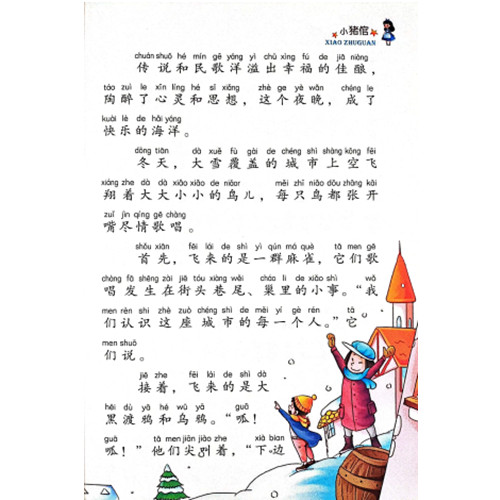 小猪倌
XIAO ZHUGUAN
chuán shuō hé mín gē yáng yì chū xìng fú de jiā niàng
传说和民歌洋溢出幸福的佳酿，
táo zuì le xīn líng hé sī xiǎng zhè ge yè wǎn chéng le
陶醉了心灵和思想，这个夜晚，成了
kuài lè de hǎi yáng
快乐的海洋。
dōng tiān dà xuě fù gài de chéng shì shàng kōng fēi
冬天，大雪覆盖的城市上空飞
xiáng zhe dà dà xiǎo xiǎo de niǎor měi zhī niǎo dōu zhāng kāi
翔着大大小小的鸟儿，每只鸟都张开
zuǐ jìn qíng gē chàng
嘴尽情歌唱。
shǒu xiān fēi lái de shì yì qún má què tā men gē
首先，飞来的是一群麻雀，它们歌
chàng fā shēng zài jiē tóu xiàng wěi cháo li de xiǎo shì wǒ
唱发生在街头巷尾、巢里的小事。“我
men rèn shi zhè zuò chéng shì de měi yí gè rén tā
们认识这座城市的每一个人。”它
men shuō
们说。
jiē zhe fēi lái de shì dà
接着，飞来的是大
hēi dù yā hé wū yā guā
黑渡鸦和乌鸦。“呱！
guā tā men jiān jiào zhe xià bian
呱！”他们尖叫着，“下边